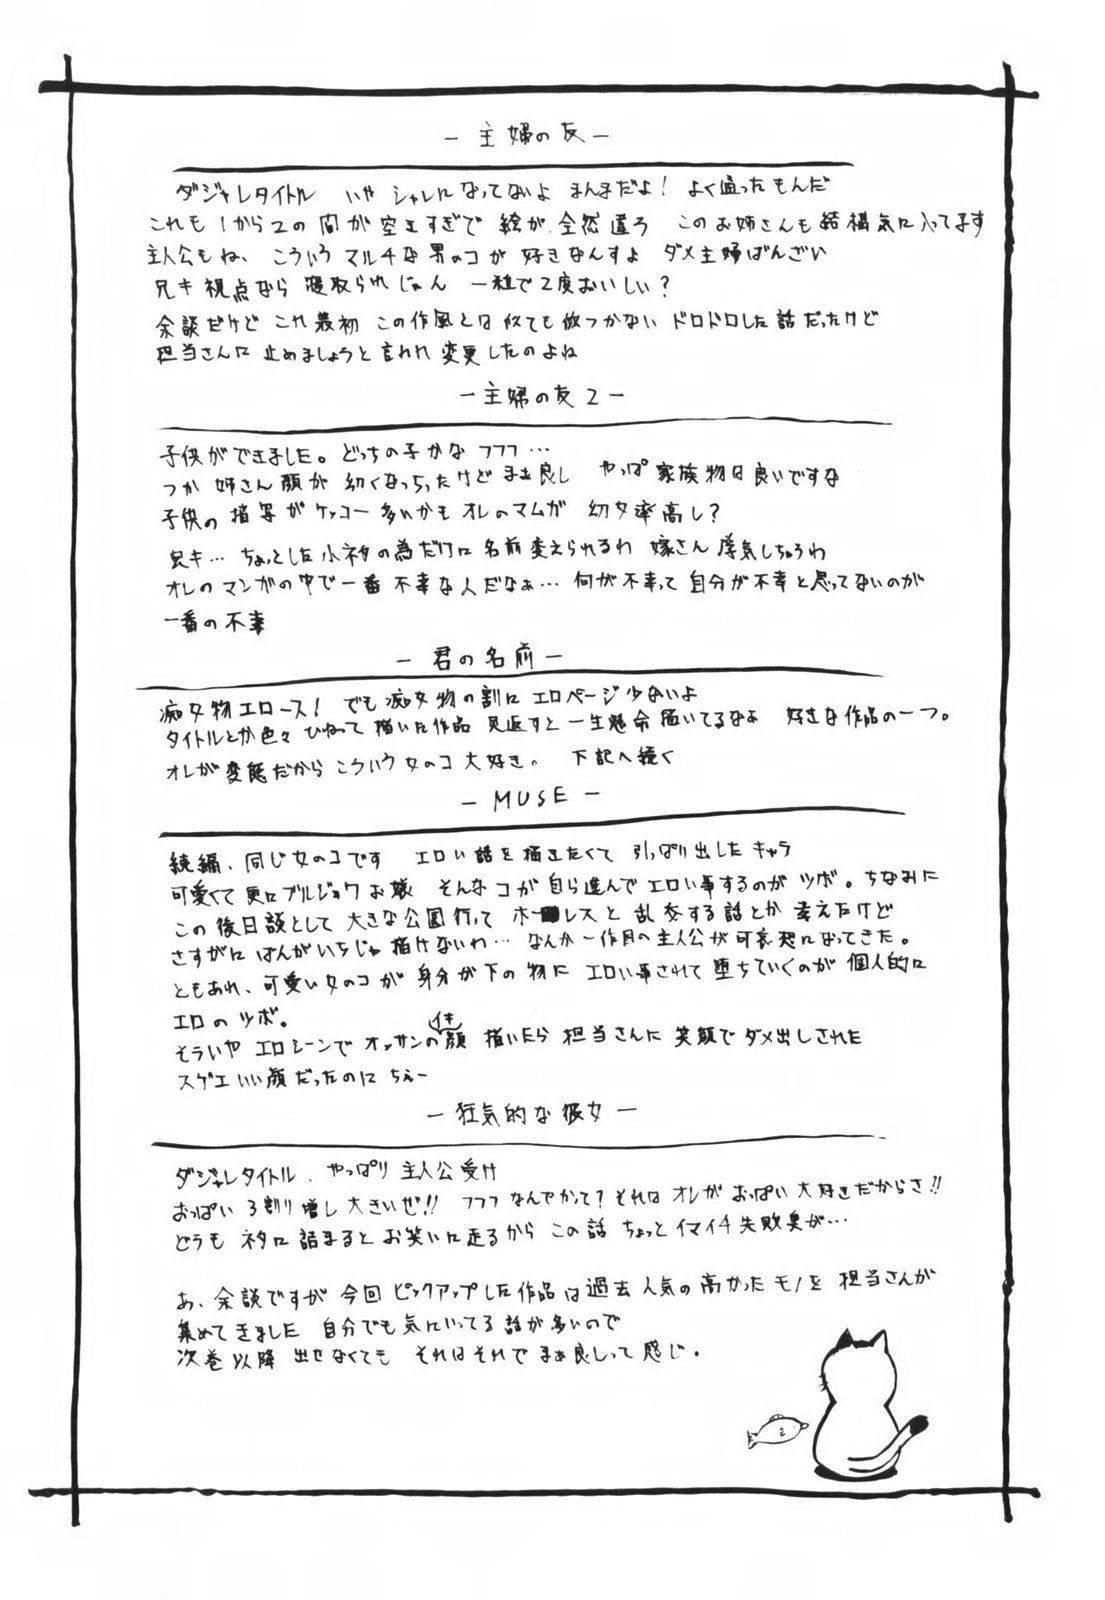 －主婦の友－
ダジャレタイトル　いや シャレになってないよ まんまだよ！ よく通ったもんだ
これも1から2の間が空きすぎで 絵が全然違う　このお姉さんも結構気に入ってます
主人公もね、こういうマルチな男のコが好きなんすよ ダメ主婦ばんざい
兄キ視点なら 寝取られじゃん　一粒で2度おいしい？
余談だけど これ最初 この作風とは似ても似つかない ドロドロした話だったけど
担当さんに 止めましょうと言われ 変更したのよね
－主婦の友2－
子供ができました。どっちの子かな フフフ…
つか 姉さん顔が 幼くなっちったけど まぁ良し　やっぱ家族物は良いですな
子供の描写がケッコー多いかも オレのマンガ 幼女率高し？
兄キ… ちょっとした小ネタの為だけに 名前変えられるわ 嫁さん浮気しちゃうわ
オレのマンガの中で一番 不幸な人だなぁ… 何が不幸って 自分が不幸と思ってないのが
一番の不幸
－君の名前－
痴女物エロース！ でも痴女物の割に エロページ少ないよ
タイトルとか色々 ひねって描いた作品 見返すと一生懸命描いてるなぁ　好きな作品の一つ。
オレが変態だから こういう女のコ大好き。　下記へ続く
－MUSE－
続編、同じ女のコです　エロい話を描きたくて 引っぱり出したキャラ
可愛くて 更にブルジョワお嬢 そんなコが自ら進んでエロい事するのが ツボ。ちなみに
この後日談として 大きな公園行って ホー レスと 乱交する話とか 考えたけど
さすがに ばんがいちじゃ描けないわ… なんか一作目の主人公が可哀想になってきた。
ともあれ、可愛い女のコが 身分が下の物に エロい事されて 堕ちていくのが 個人的に
エロのツボ。
そういや エロシーンで オッサンのイキ顔 描いたら 担当さんに 笑顔でダメ出しされた
スゲエいい顔だったのに ちぇー
－狂気的な彼女－
ダジャレタイトル、やっぱり 主人公受け
おっぱい 3割り増し大きいぜ!! フフフ なんでかって？それは オレが おっぱい大好きだからさ!!
どうも ネタに詰まると お笑いに走るから この話 ちょっとイマイチ失敗臭が…
あ、余談ですが 今回 ピックアップした作品は過去 人気の高かったモノを 担当さんが
集めてきました 自分でも気にいってる話が多いので
次巻以降 出せなくても それはそれで まぁ良しって感じ。